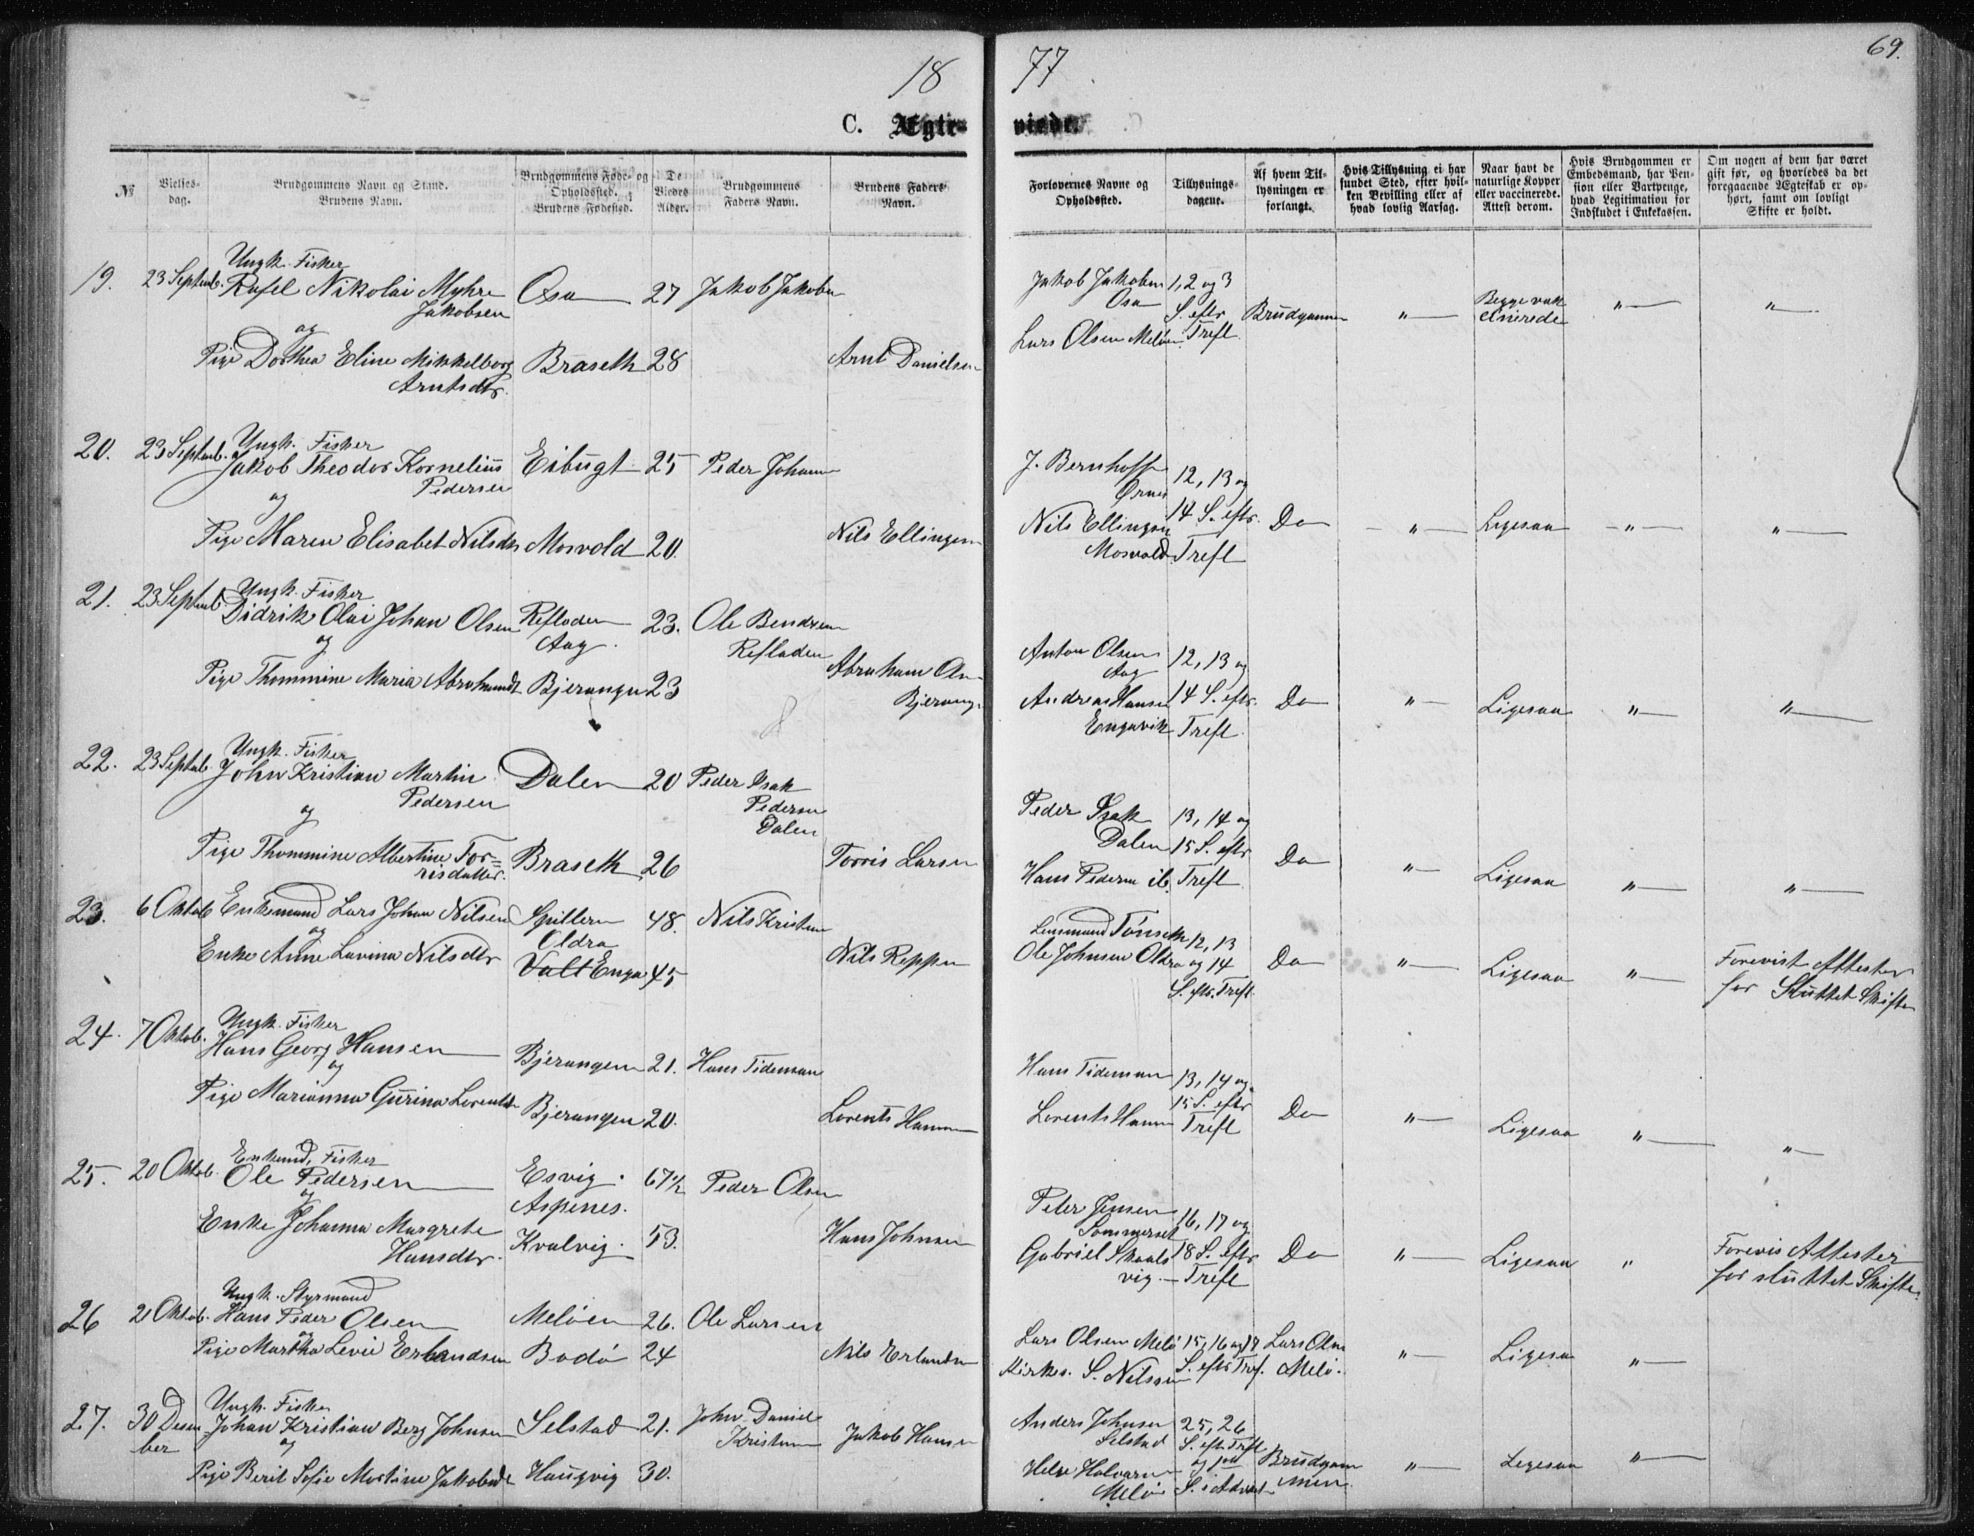 18 77 69.
C. Ægte- viede.
№
Vielses-
dag.
Brudgommens Navn og Stand.
Brudens Navn.
Brudgommens Føde- og
Opholdssted.
Brudens Fødested.
De
Viedes
Alder.
Brudgommens
Faders Navn.
Brudens Faders
Navn.
Forlovernes Navne og
Opholdssted.
Tillysnings-
dagene.
Af hvem Til-
lysningen er
forlangt.
Hvis Tillysning ei har
fundet Sted, efter hvil-
ken Bevilling eller af
hvad lovlig Aarsag.
Naar havt de
naturlige Kopper
eller vaccinerede.
Attest derom.
Hvis Brudgommen er
Embedsmand, har Pen-
sion eller Vartpenge,
hvad Legitimation for
Indskudet i Enkekassen.
Om nogen af dem har været
gift før, og hvorledes da det
foregaaende Ægteskab er op-
hørt, samt om lovligt
Skifte er holdt.
19. 23 Septemb. Ungk. Fisker
Rafel Nikolai Myhre
Jakobsen Osa 27 Jakob Jakobsen
og
Pige Dorthea Eline Mikkelborg
Arntsdtr. Braseth 28 Arnt Danielsen
Jakob Jakobsen
Osa
Lars Olsen Meløen
1, 2 og 3
S. eftr
Trefl. Brudgommen " Begge vak
cinerede " "
20. 23 Septemb. Ungk. Fisker
Jakob Theodor Kornelius
Pedersen Eibugt 25 Peder Johan
og
Pige Maren Elisabet Nilsdtr Mosvold 20. Nils Ellingsen
J. Bernhoft
Ørnes
Nils Ellingsen
Mosvold
12, 13 og
14 S. eftr.
Trefl Do " Ligesaa " "
21. 23 Septemb. Ungk. Fisker
Didrik Olai Johan Olsen Refladen
Aag. 23. Ole Bendixen
Refladen
og
Pige Thommine Maria Abrahamsdt Bjerangen 23 Abraham Olsen
Bjerang.
Anton Olsen
Aag
Andreas Hansen
Engavik
12, 13 og
14 S. eftr.
Trefl. Do " Ligesaa " "
22. 23 Septemb. Ungk. Fisker
John Kristian Martin
Pedersen Dalen 20 Peder Isak
Pedersen
Dalen
og
Pige Thommine Albertine Tor=
risdatter. Braseth 26 Torris Larsen
Peder Isak
Dalen
Hans Pedersen ib.
13, 14 og
15 S. eftr
Trefl Do " Ligesaa " "
23. 6 Oktob Enkemand Lars Johan Nilsen Spilleren
Oldra 48. Nils Kristian
og
Enke Anne Lavina Nilsdtr Valt Enga 45 Nils Reppen
Lensmand Tønseth
Ole Johnsen Oldra
12, 13
og 14
S. eftr. Trefl. Do " Ligesaa " Forevist Attester
for Sluttet Skifte
24. 7 Oktob. Ungk. Fisker
Hans Georg Hansen Bjerangen 21. Hans Tideman
og
Pige Marianna Gurina Lorentsdtr Bjerangen 20. Lorents Hansen
Hans Tideman
Lorents Hansen
13, 14 og.
15 S. eftr
Trefl Do " Ligesaa " "
25. 20 Oktob. Enkemd, Fisker
Ole Pedersen Esvig.
Aspenes. 67½ Peder Olsen
og
Enke Johanna Margrete
Hansdtr. Kvalvig. 53. Hans Johnsen
Peter Jensen
Sommerset
Gabriel Skaals
vig.
16, 17 og
18 S. eftr
Trefl Do " Ligesaa " Forevis Attester
for sluttet Skifte.
26 21 Oktob. Ungk. Styrmand
Hans Peder Olsen Meløen 26. Ole Larsen
og
Pige Martha Levie Erlandsen Bodø 24 Nils Erlandsen
Lars Olsen Melø
Kirkes. S. Nilssen
15, 16 og 17
S. eftr Tref. Lars Olsen
Melø. " Ligesaa "
27. 30 Desem
ber Ungk. Fisker
Johan Kristian Berg Johnsen Selstad 21. John Daniel
Kristian
og
Pige Berit Sofie Martine Jakobsdt Haugvig 30. Jakob Hansen
Anders Johnsen
Selstad
Helge Halvorsen
Melø
25, 26
S. eftr Trefl
og
S. i Advent Brudgom
men " Ligesaa "